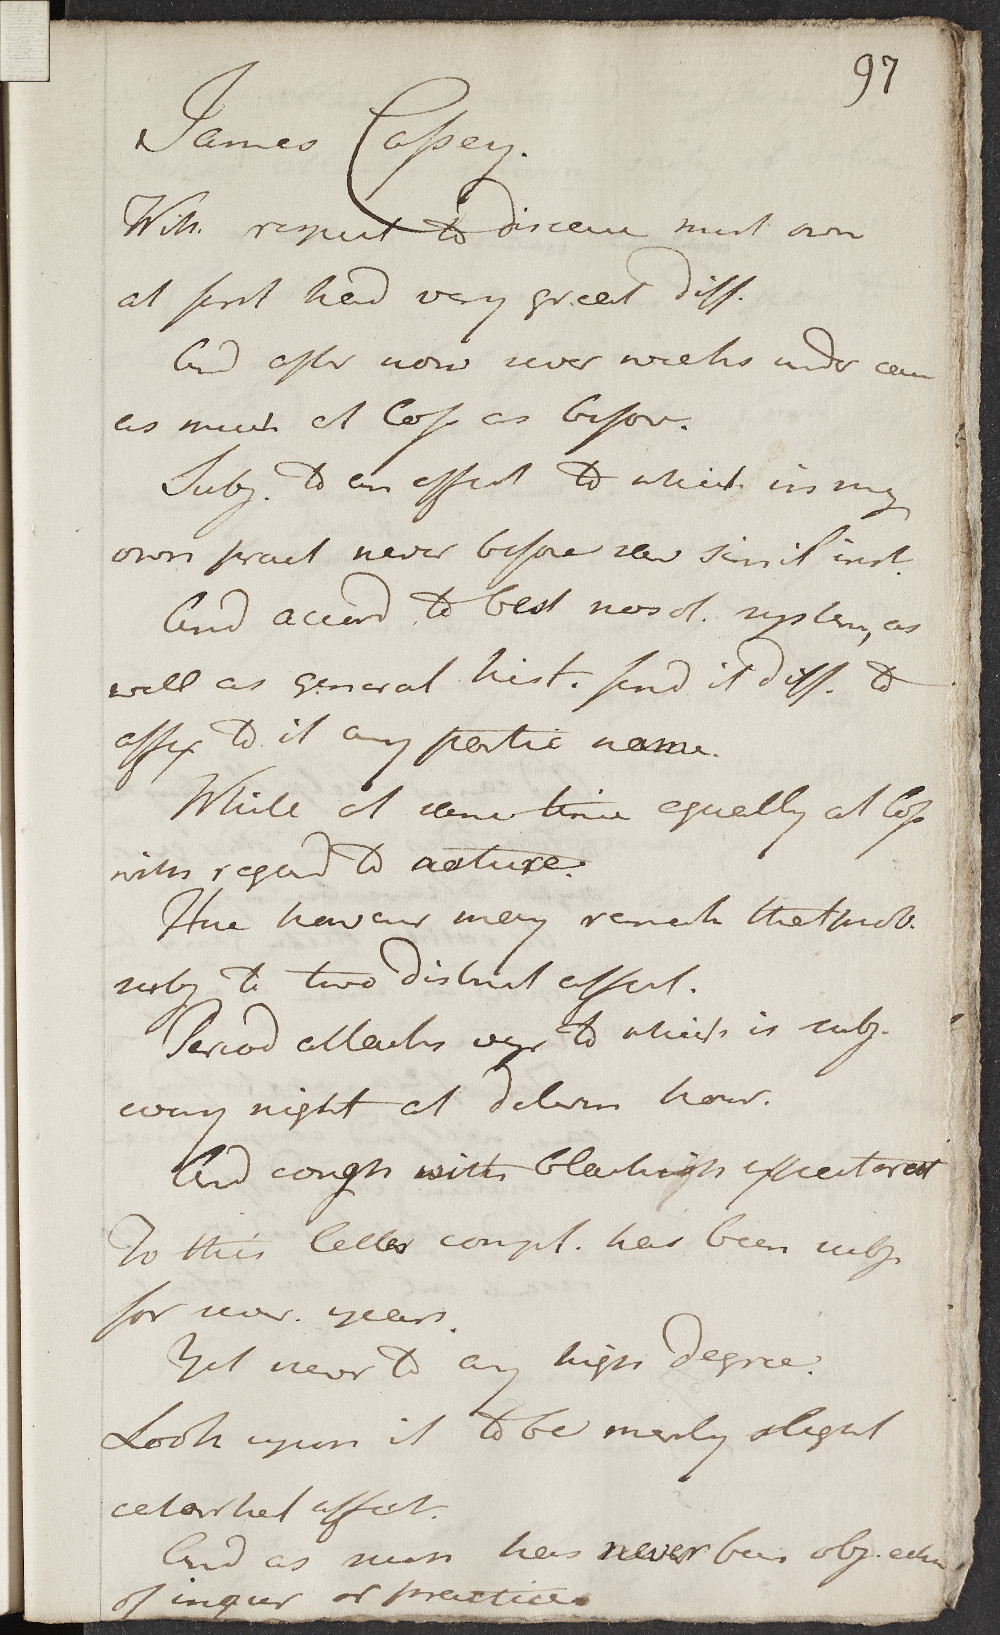 97
James Cassey.
With respect to disease must own
at first had very great diff.
And after now sever weeks under care
as much at loss as before.
Subj. to an affect to which in my
own pract never before saw simil inst.
And accord to best nosol. system, as
well as general hist. find it diff. to
affix to it any partic name.
While at same time equally at loss
with regard to nature.
Here however may remark that prob.
subj to two distinct affect.
Period attacks to which is subj.
every night at determ hour.
And cough with blackish expectorat
To this latter compl. has been subj.
for sever. years.
Yet never to any high degree.
Look upon it to be merely slight
catarrhal affect.
And as such has never been obj. either
of inquir or practice.